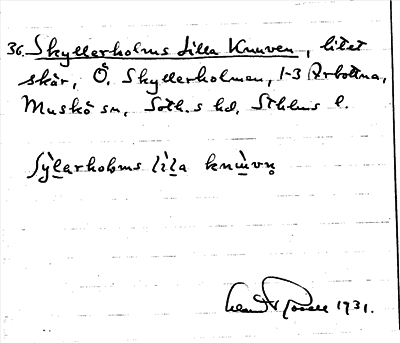 36. Skyllerholms Lilla Knuven, litet
skär, Ö. Skyllerholmen, 1-3 Arbottna,
Muskö sn, Soth.s hd, Sthlms l.
Sỳlarholoms lìla knɯ̀vn̥
1931.